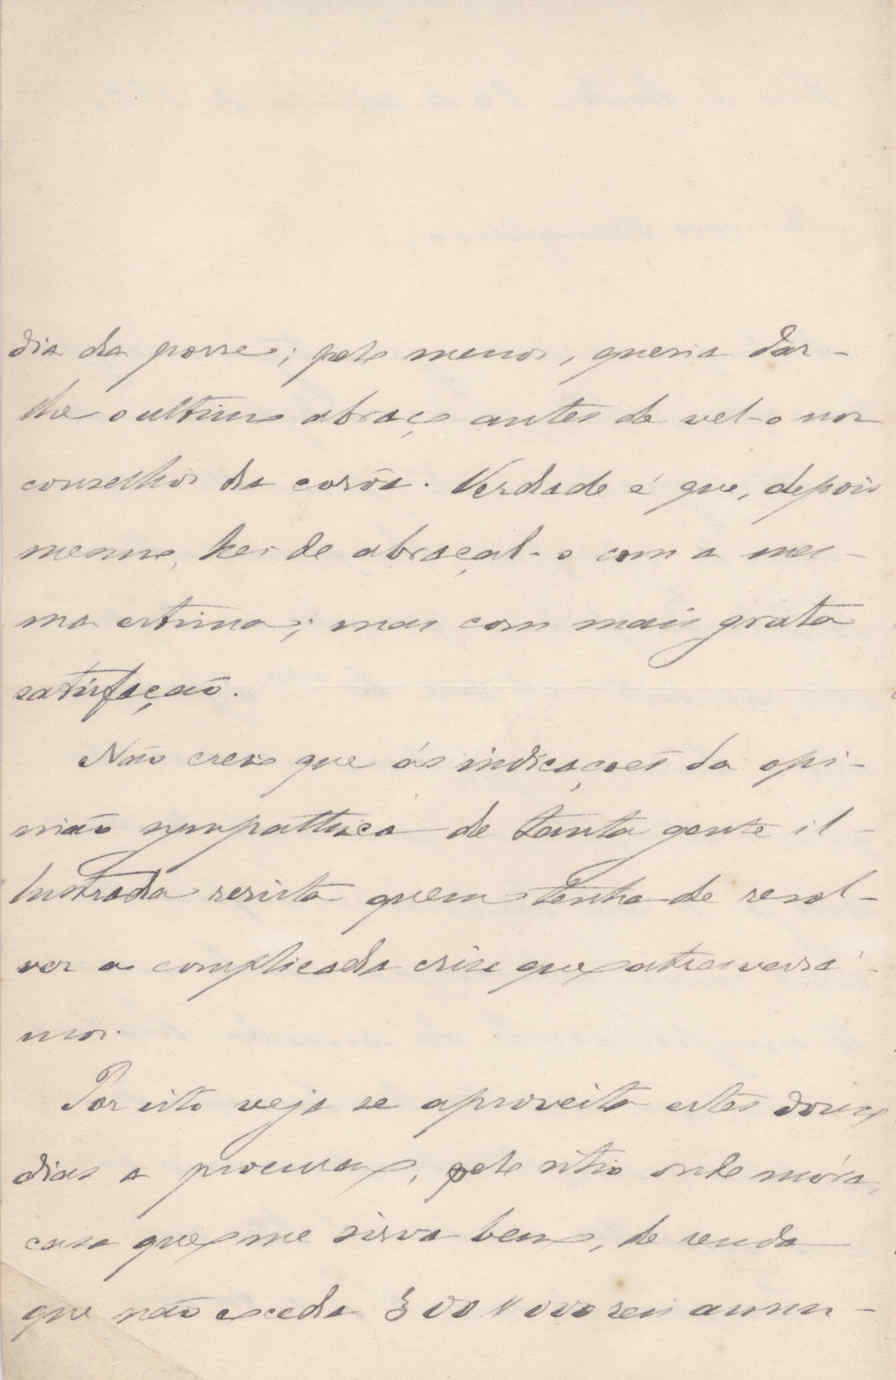 dia da posse; pelo menos, queria dar-
lhe o ultimo abraço antes de vel-o nos
conselhos da corôa. Verdade é que, depois
mesmo, hei de abraçal-o com a mes-
ma estima; mas com mais grata
satisfação.
Não creio que ás indicações da opi-
nião sympathica de tanta gente il-
lustrada resista quem tenha de resol-
ver a complicada crise que atravessa-
mos.
Por isto veja se aproveita estes dous
dias a procurar, pelo sitio onde móra,
casa que me sirva bem, de renda
que não exceda 300 000 reis annu-